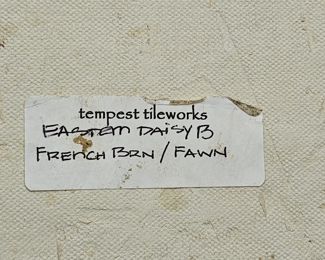 tempest tileworks
EASTERN DAISY B
FRENCH BRN / FAWN